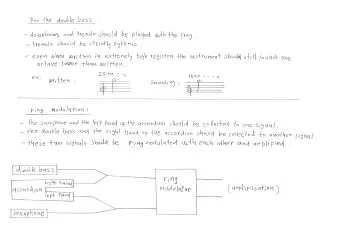 For the double bass :
- downbows and tremolo should be played with the frog.
- tremolo should be strictly rythmic.
- even when written in extremely high register the instrument should still sound one
octave lower than written.
ex. written : sounding :
ring modulation :
- the saxophone and the left hand of the accordion should be collected to one signal.
- the double bass and the right hand of the accordion should be collected to another signal.
- these two signals should be ring modulated with each other and amplified.
double bass
right hand
accordion
left hand
saxophone
ring
modulator
(amplification)